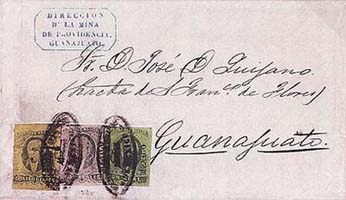 DIRECCION
Dᴱ LA MINA
DE PROVIDENCIA,
GUANAJUATO.
Sr. D. José D. Quijano
(Hacda de S. Franco. de Flores)
Guanajuato.